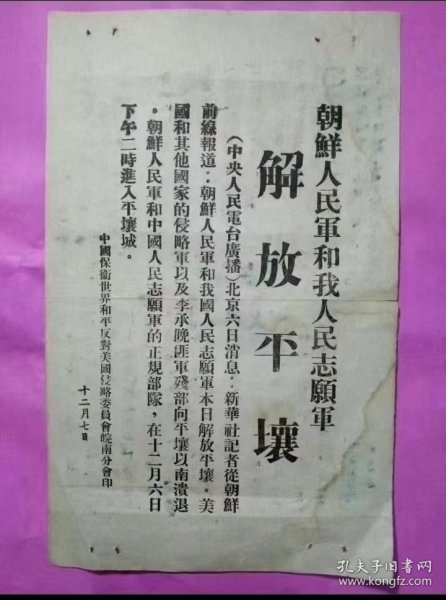 朝鮮人民軍和我人民志願軍
解放平壤
(中央人民電台廣播)北京六日消息：新華社記者從朝鮮
前線報道：朝鮮人民軍和我國人民志願軍本日解放平壤。美
國和其他國家的侵略軍以及李承晚匪軍殘部向平壤以南潰退
。朝鮮人民軍和中國人民志願軍的正規部隊，在十二月六日
下午二時進入平壤城。
中國保衛世界和平反對美國侵略委員會皖南分會印
十二月七日
孔夫子旧书网
www.kongfz.com